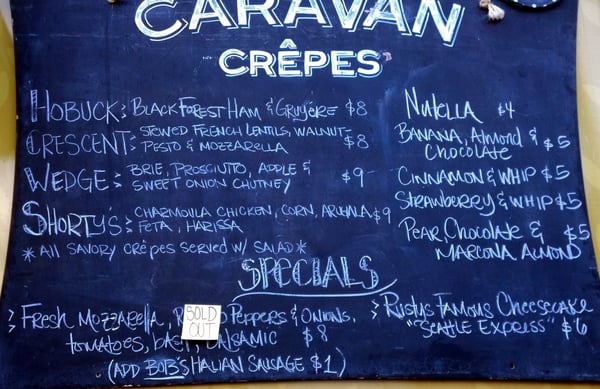 CARAVAN
CRÊPES
HOBUCK: BLACK FOREST HAM & GRUYÉRE $8
CRESCENT: STEWED FRENCH LENTILS, WALNUT-
PESTO & MOZZARELLA $8
WEDGE: BRIE, PROSCIUTTO, APPLE &
SWEET ONION CHUTNEY $9
SHORTY'S: CHARMOULA CHICKEN, CORN, ARUGULA $9
FETA, HARISSA
*All SAVORY CRÊPES SERVED W/ SALAD*
Nutella $4
BANANA, Almond &
Chocolate $5
CINNAMON & WHIP $5
STRAWBERRY & WHIP $5
Pear, Chocolate &
MARCONA Almond $5
SPECIALS
FRESH MOZZARELLA, PEPPERS & ONIONS,
SOLD
OUT
TOMATOES, BALSAMIC $8
(ADD BOB'S ITALIAN SAUSAGE $1)
Rustys Famous Cheesecake
"SEATTLE EXPRESS" $6